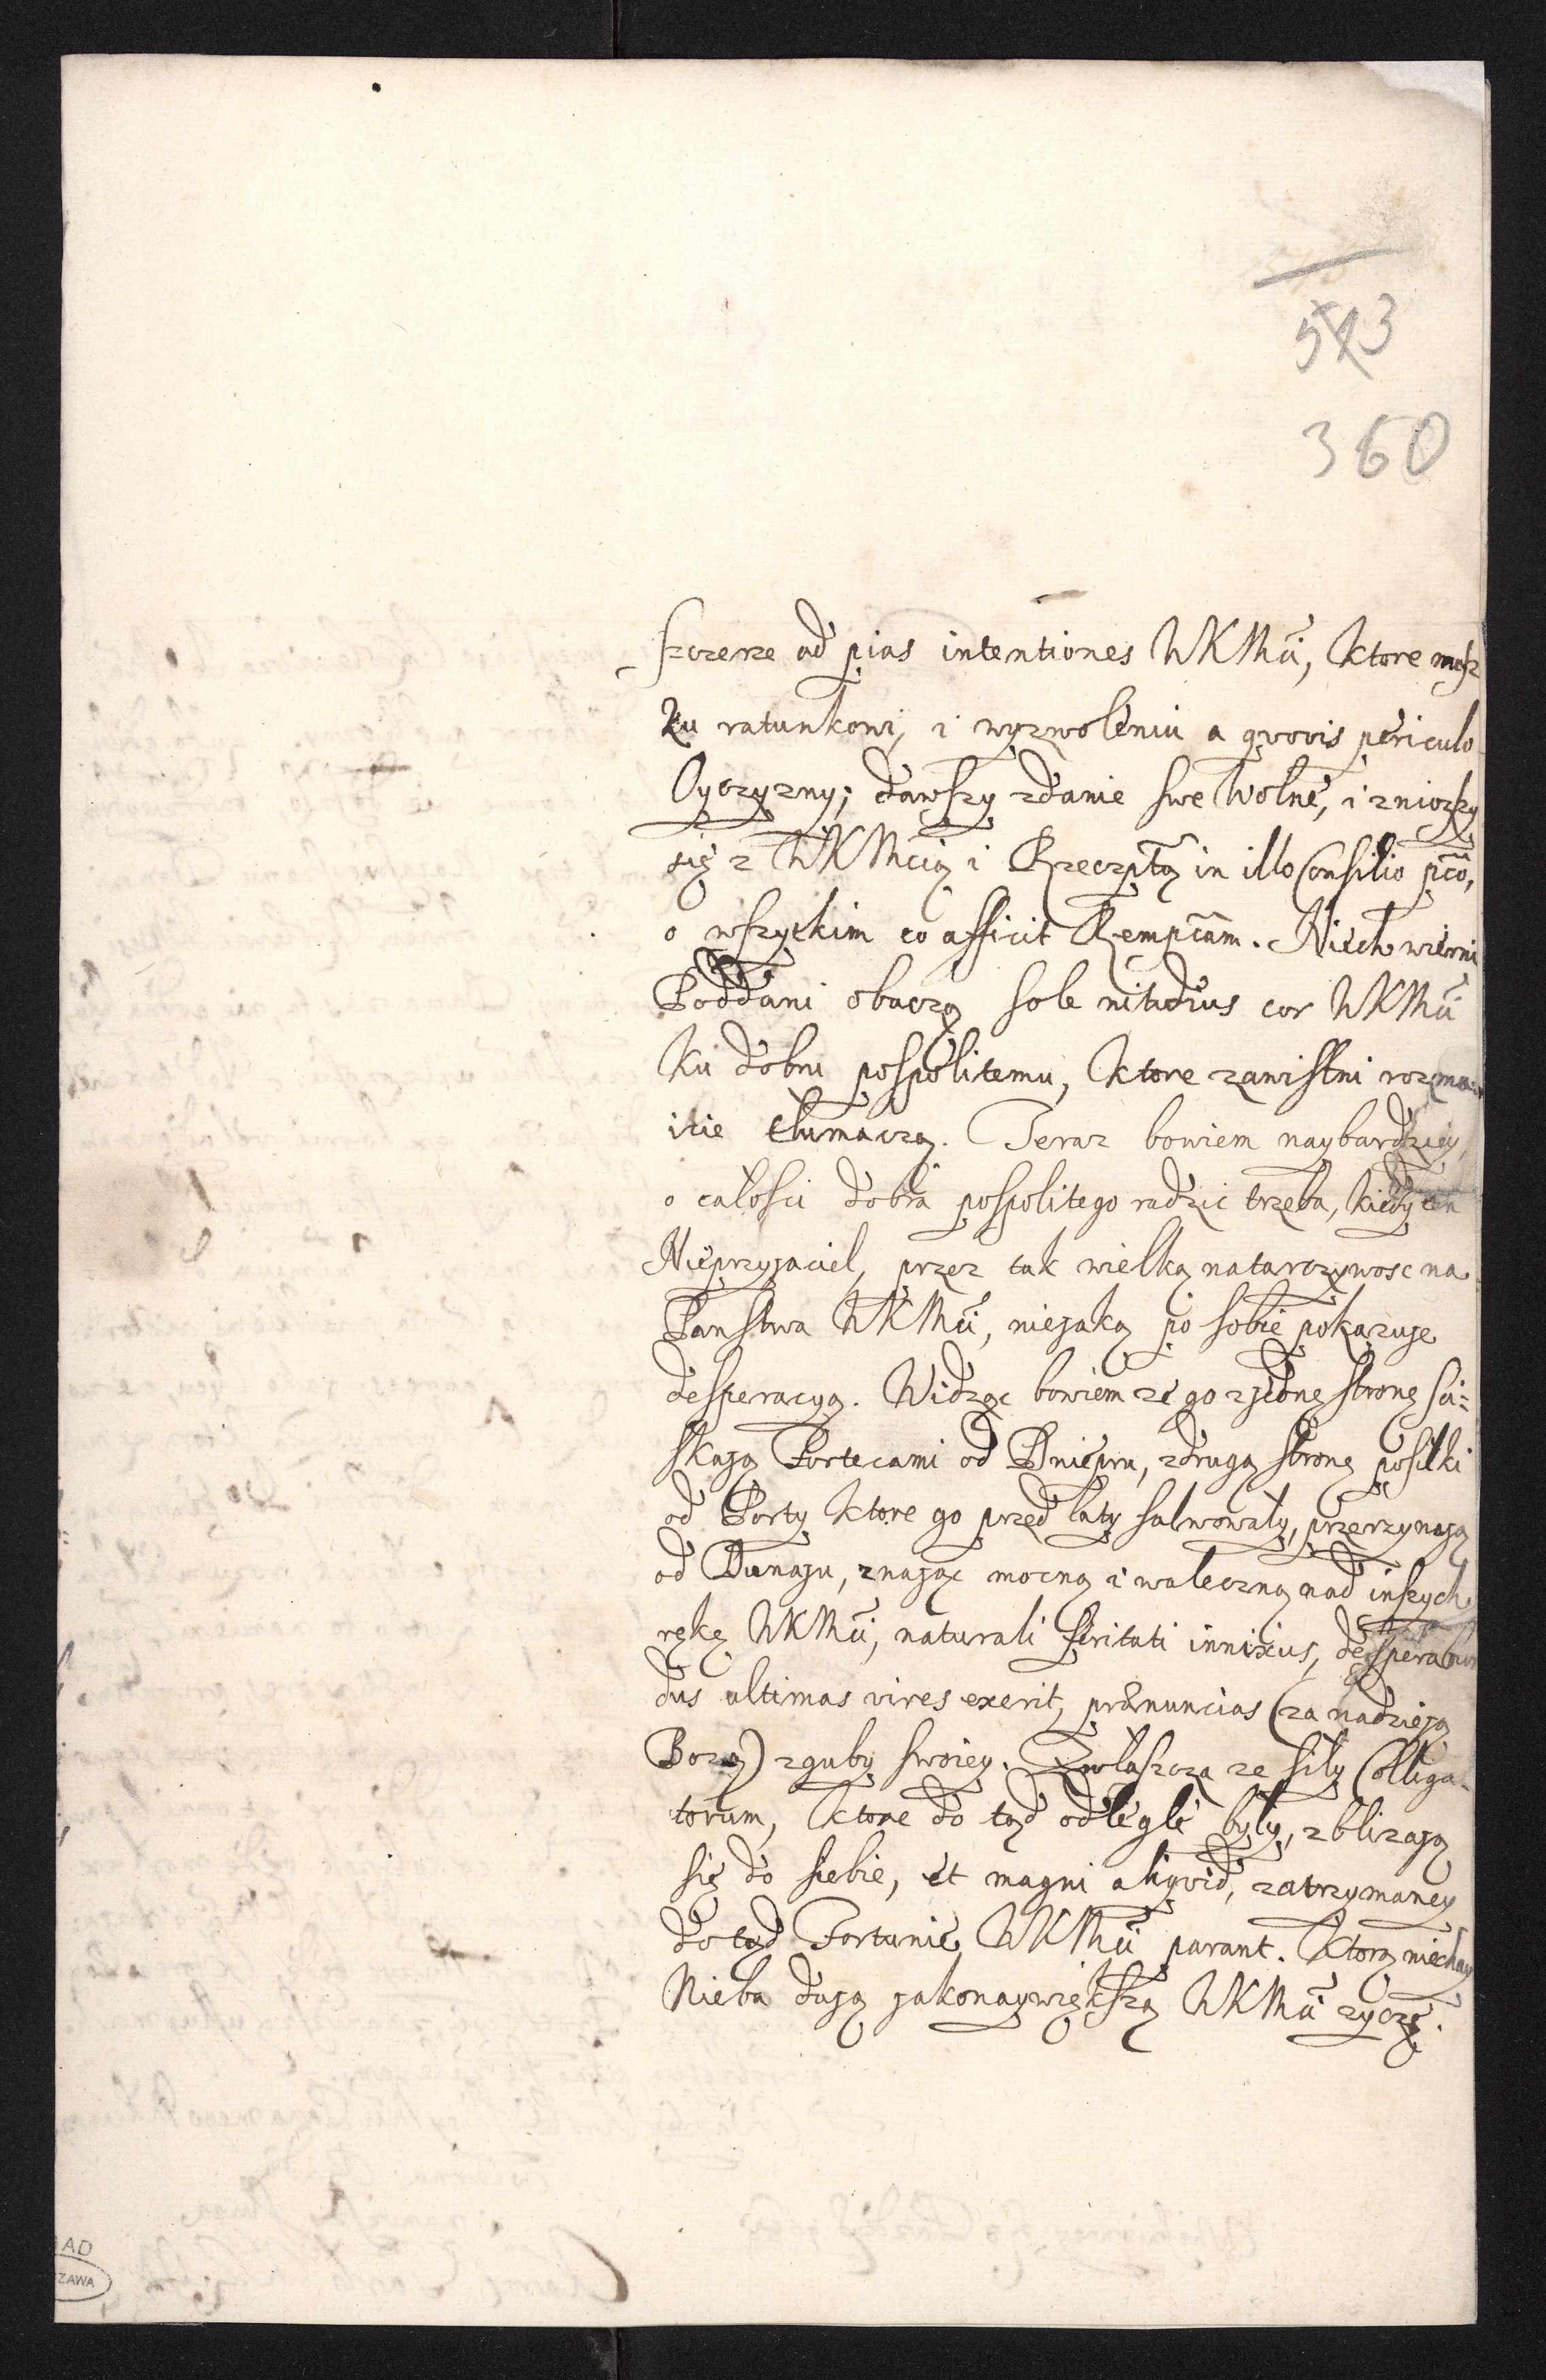 543
360
szczerze ad pias intentiones WKMci, ktore masz
ku ratunkowi, i wyzwoleniu a quovis periculo
Oyczyzny; dawszy zdanie swe wolne, i zniozszy
się z WKMcią i Rzecząptą in illo Consilio pco,
o wszyckim co afficit Rempcam. Niech wierni
Poddani obaczą sole nitidius cor WKMci
ku dobru pospolitemu, ktore zawistni rozma=
icie tłumaczą. Teraz bowiem naybardziey,
o całosci dobra pospolitego radzic trzeba, kiedy ten
Nieprzyjaciel, przez tak wielką natarczywosc na
Panstwa WKMci, niejaką po sobie pokazuje
desperacyą. Widząc bowiem ze go z jedne stronę sci=
skają Fortecami od Dniepru, z drugą stronę posiłki
od Porty ktore go przed laty salwowały, przerzynają
od Dunaju, znając moczną i waleczną nad inszych
rękę WKMci, naturali feritati innixus, desperabun
dus ultimas vires exerit, prænuncias (za nadzieją
Bozą) zguby swoiey. Zwłaszcza ze siły Colliga=
torum, ktore do tąd odległe były, zblizają
się do siebie, et magni aliquid, zatrzymaney
do tąd Fortunie WKMci parant. Ktorą niechay
Nieba dają jakonaywiększą WKMci zyczę.
AD
ZAWA